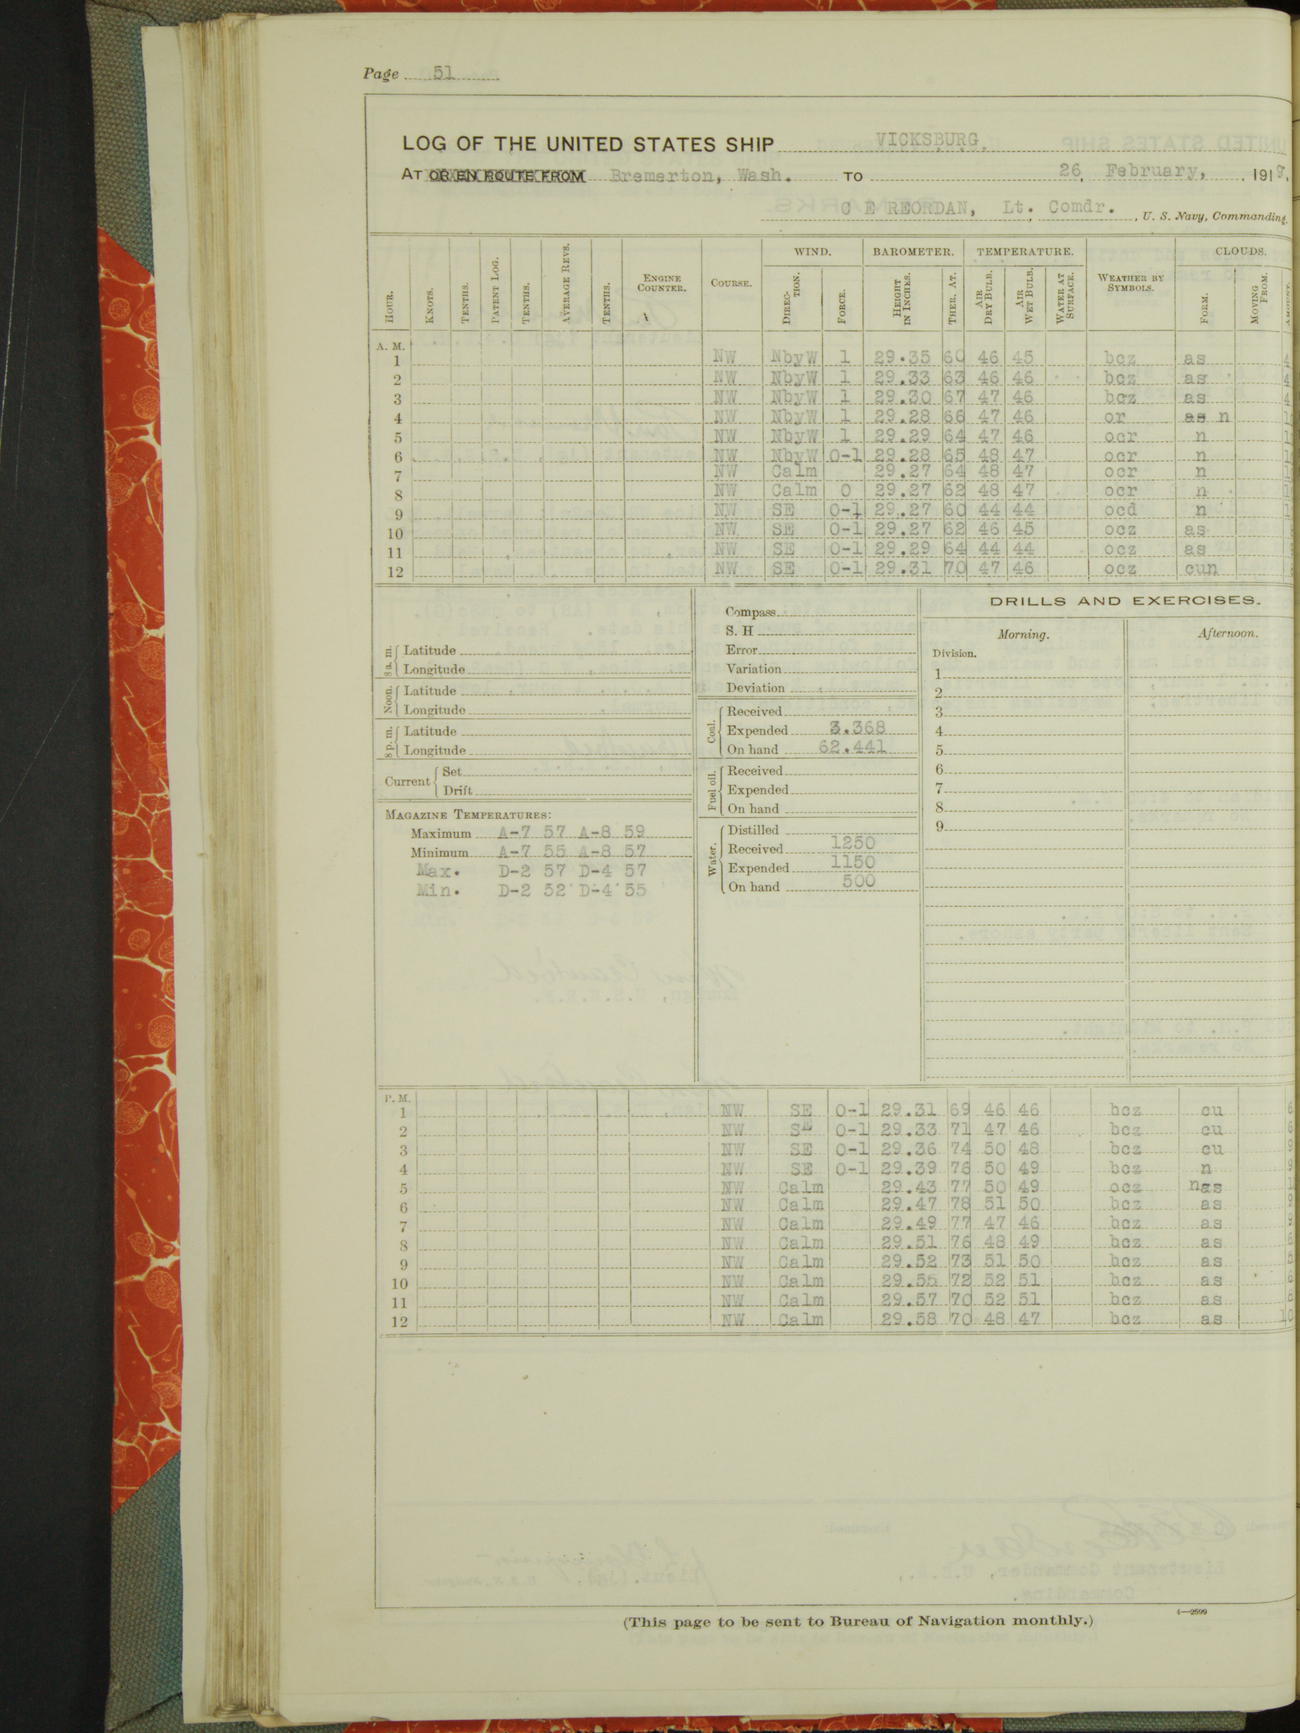 Page 51
LOG OF THE UNITED STATES SHIP VICKSBURG,
AT OR EN ROUTE FROM Bremerton, Wash. TO 26, February, 1918,
C E REORDAN, Lt. Comdr., U. S. Navy, Commanding.
WIND. BAROMETER. TEMPERATURE. CLOUDS.
HOUR. KNOTS. TENTHS. PATENT LOG. TENTHS. AVERAGE REVS. TENTHS. ENGINE COUNTER. COURSE. DIRECTION. FORCE. HEIGHT IN INCHES. THER. AT. AIR DRY BULB. AIR WET BULB. WATER AT SURFACE. WEATHER BY SYMBOLS. FORM. MOVING FROM.
A. M.
1 NW NbyW 1 29.35 60 46 45 bcz as 4
2 NW NbyW 1 29.33 63 46 46 bcz as 4
3 NW NbyW 1 29.30 67 47 46 bcz as 4
4 NW NbyW 1 29.28 66 47 46 or as n
5 NW NbyW 1 29.29 64 47 46 ocr n
6 NW NbyW 0-1 29.28 65 48 47 ocr n
7 NW Calm 29.27 64 48 47 ocr n
8 NW Calm 0 29.27 62 48 47 ocr n
9 NW SE 0-1 29.27 60 44 44 ocd n
10 NW SE 0-1 29.27 62 46 45 ocz as
11 NW SE 0-1 29.29 64 44 44 ocz as
12 NW SE 0-1 29.31 70 47 46 ocz cun
8 a. m. Latitude
Longitude
Noon. Latitude
Longitude
8 p. m. Latitude
Longitude
Current Set
Drift
MAGAZINE TEMPERATURES:
Maximum A-7 57 A-8 59
Minimum A-7 55 A-8 57
Max. D-2 57 D-4 57
Min. D-2 52 D-4 55
Compass
S. H
Error
Variation
Deviation
Coal. Received
Expended 3.368
On hand 62.441
Fuel oil. Received
Expended
On hand
Water. Distilled
Received 1250
Expended 1150
On hand 500
DRILLS AND EXERCISES.
Morning. Afternoon.
Division.
1
2
3
4
5
6
7
8
9
P. M.
1 NW SE 0-1 29.31 69 46 46 bcz cu 6
2 NW SE 0-1 29.33 71 47 46 bcz cu 6
3 NW SE 0-1 29.36 74 50 48 bcz cu 9
4 NW SE 0-1 29.39 76 50 49 bcz n 9
5 NW Calm 29.43 77 50 49 ocz nas
6 NW Calm 29.47 78 51 50 bcz as
7 NW Calm 29.49 77 47 46 bcz as
8 NW Calm 29.51 76 48 49 bcz as
9 NW Calm 29.52 73 51 50 bcz as
10 NW Calm 29.55 72 52 51 bcz as
11 NW Calm 29.57 70 52 51 bcz as
12 NW Calm 29.58 70 48 47 bcz as 10
(This page to be sent to Bureau of Navigation monthly.)